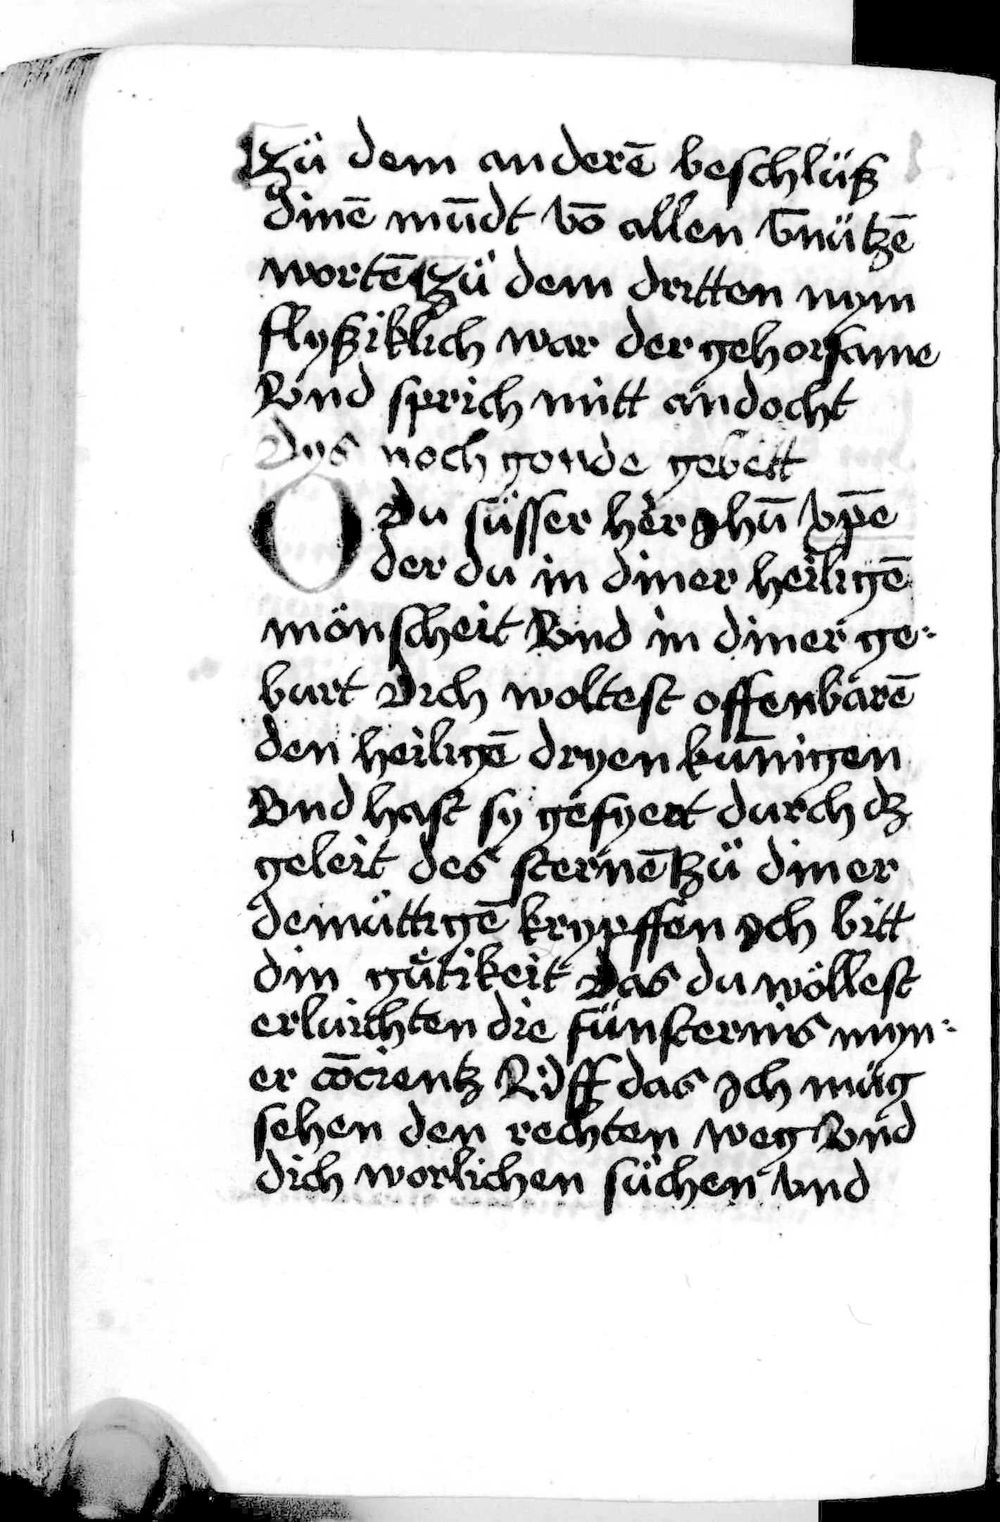 Tzü dem anderē beschlüß
dinē mūdt vō allen vn̄ützē
wortē Tzü dem dritten nym
flyßiklich war der gehorsame
Vnd sprich mitt andocht
dys noch gonde gebett
O Du süsser her Jhū xp̄e
der du in diner heiligē
mönscheit Vnd in diner ge-
burt Dich woltest offenbarē
den heiligē dryen kūnigen
Vnd hast sy gefyert durch dz
geleit des sternē tzü diner
demüttigē krypffen Jch bitt
din gütikeit Das du wöllest
erluichten die fünsternis myn-
er cōcientz Vff das Jch müg
sehen den rechten weg Vnd
dich worlichen süchen vnd